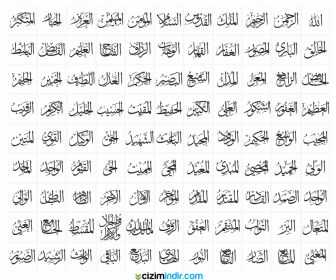 الله الرحمن الرحيم الملك القدوس السلام المؤمن المهيمن العزيز الجبار المتكبر
الخالق البارئ المصور الغفار القهار الوهاب الرزاق الفتاح العليم القابض الباسط
الخافض الرافع المعز المذل السميع البصير الحكم العدل اللطيف الخبير الحليم
العظيم الغفور الشكور العلي الكبير الحفيظ المقيت الحسيب الجليل الكريم الرقيب
المجيب الواسع الحكيم الودود المجيد الباعث الشهيد الحق الوكيل القوي المتين
الولي الحميد المحصي المبدئ المعيد المحيي المميت الحي القيوم الواجد الماجد
الواحد الصمد القادر المقتدر المقدم المؤخر الأول الآخر الظاهر الباطن الوالي
المتعال البر التواب المنتقم العفو الرؤوف مالك الملك ذو الجلال والإكرام المقسط الجامع الغني
المغني المانع الضار النافع النور الهادي البديع الباقي الوارث الرشيد الصبور
cizimindir.com